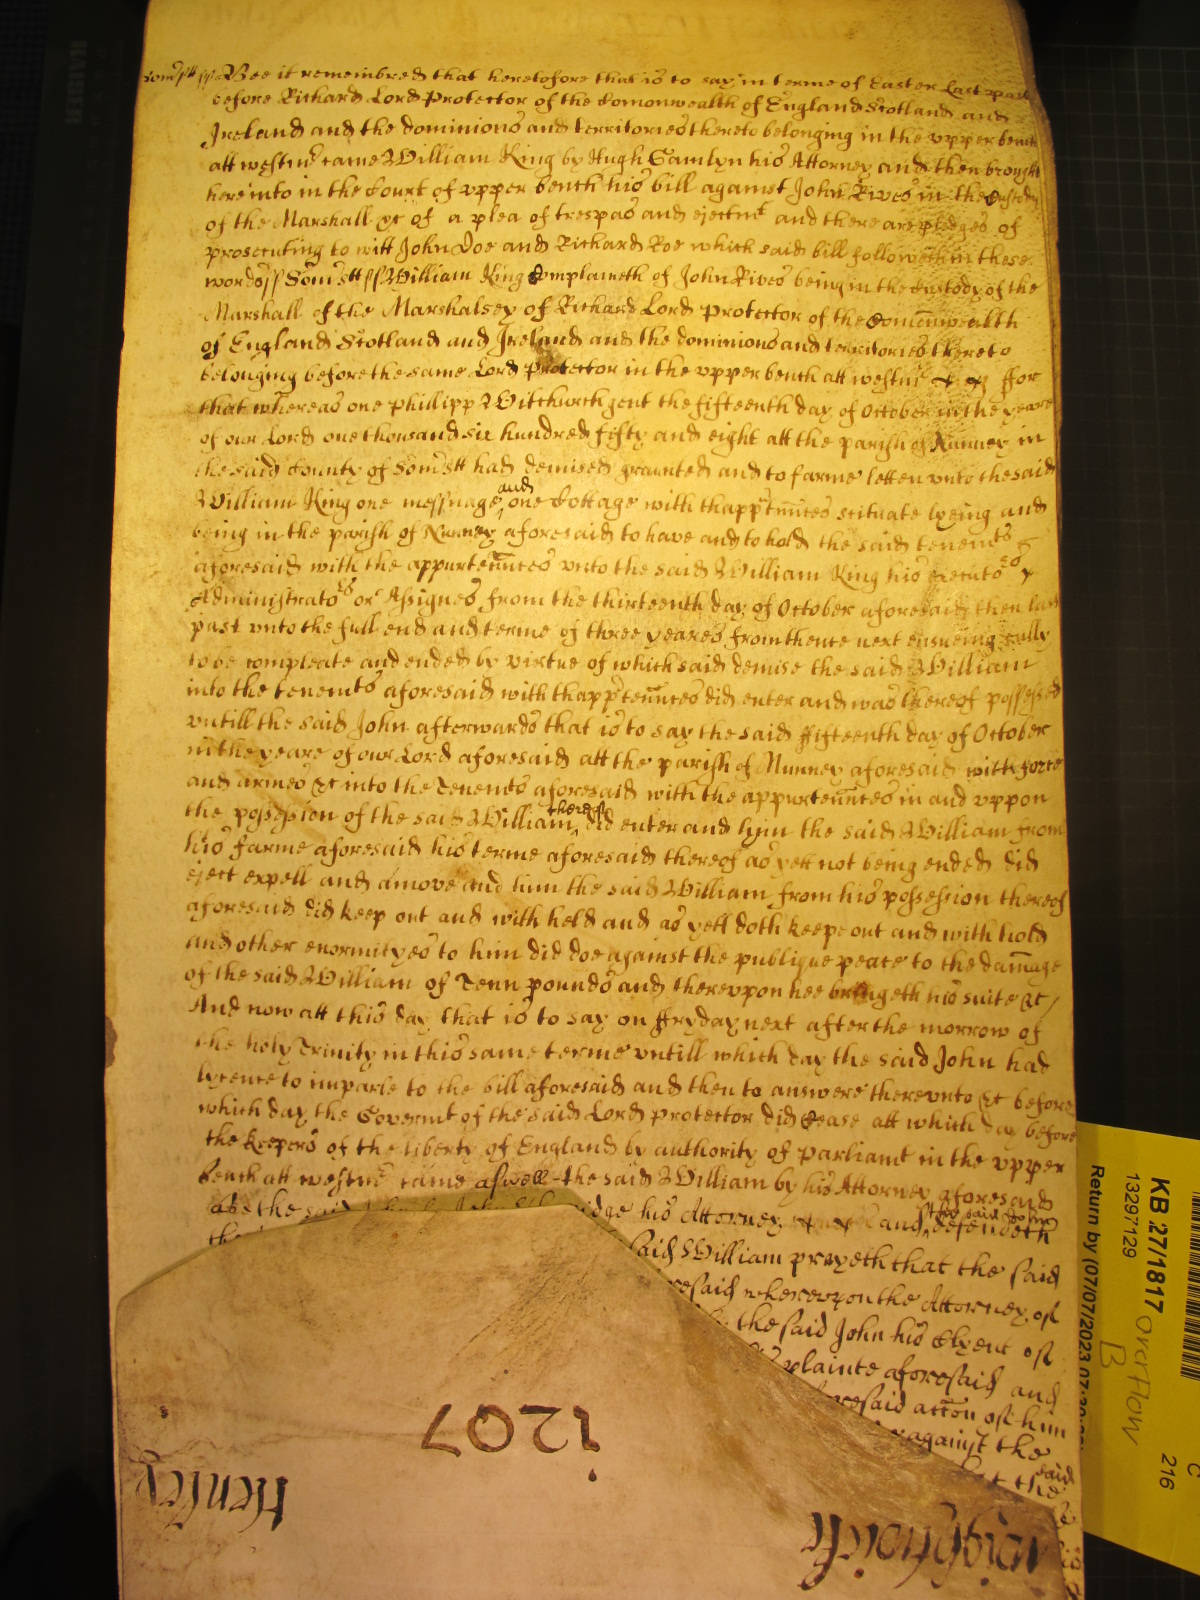 Som'stt ss Bee it remembred that heretofore that is to say in terme of Easter Last past
before Richard Lord Protector of the Comonwealth of England Scotland and
Ireland and the dominions and territories thereto belonging in the vpper bench
att westm' came William King by Hugh Gamlyn his Attorney and then brought
here into in the Court of vpper bench his bill against John Rives in the Custody
of the Marshall &c of a plea of trespas and ejectmt and there are pledges of
prosecuting to witt John Doe and Richard Roe which said bill followeth in these
words ss Som'stt ss William King Complaineth of John Rives being in the Custody of the
Marshall of the Marshalsey of Richard Lord Protector of the Comonwealth
of England Scotland and Ireland and the dominions and territories thereto
belonging before the same Lord Protector in the vpper bench att westm' ffor
that whereas one Phillipp Witchurch gent the fifteenth day of October in the yeare
of our Lord one thousand six hundred fifty and eight att the parish of Nunney in
the said County of Som'stt had demised graunted and to farme letten vnto the said
William King one messuage and one Cottage with thapp'tnnces scituate lyeing and
being in the parish of Nunney aforesaid to have and to hold the said tenemts
aforesaid with the appurtennces vnto the said William King his executors
Administrators or Assignes from the thirteenth day of October aforesaid then last
past vnto the full end and terme of three yeares from thence next ensueing fully
to be compleate and ended by virtue of which said demise the said William
into the tenemts aforesaid with thapp'tennces did enter and was thereof possessed
vntill the said John afterwards that is to say the said ffifteenth day of October
in the yeare of our Lord aforesaid att the parish of Nunney aforesaid with force
and armes &c into the Tenemts aforesaid with the appurtennces in and vppon
the possession of the said William thereof did enter and hym the said William from
his farme aforesaid his terme aforesaid thereof as yett not being ended did
eject expell and amove and him the said William from his possession thereof
aforesaid did keep out and with held and as yett doth keepe out and with hold
and other enormityes to him did doe against the publique peace to the damage
of the said William of Tenn pounds and therevpon hee bringeth his suite &c
And now att this day that is to say on ffryday next after the morrow of
the holy Trinity in this same terme vntill which day the said John had
lycence to imparle to the bill aforesaid and then to answere therevnto &c before
which day the Governmt of the said Lord Protector did cease att which day before
the keepers of the liberty of England by authority of Parliamt in the vpper
bench att westm' came aswell the said William by his Attorney aforesaid
as the said John his Attorney and the said John defendeth
said William prayeth that the said
aforesaid wherevpon the Attorney of
the said John his Clyent of
plainte aforesaid and
aforesaid accon of him
against the
said
the
1207
Henley
Wightwicke
KB 27/1817 overflow
B
13297129
Return by (07/07/2023
C
216